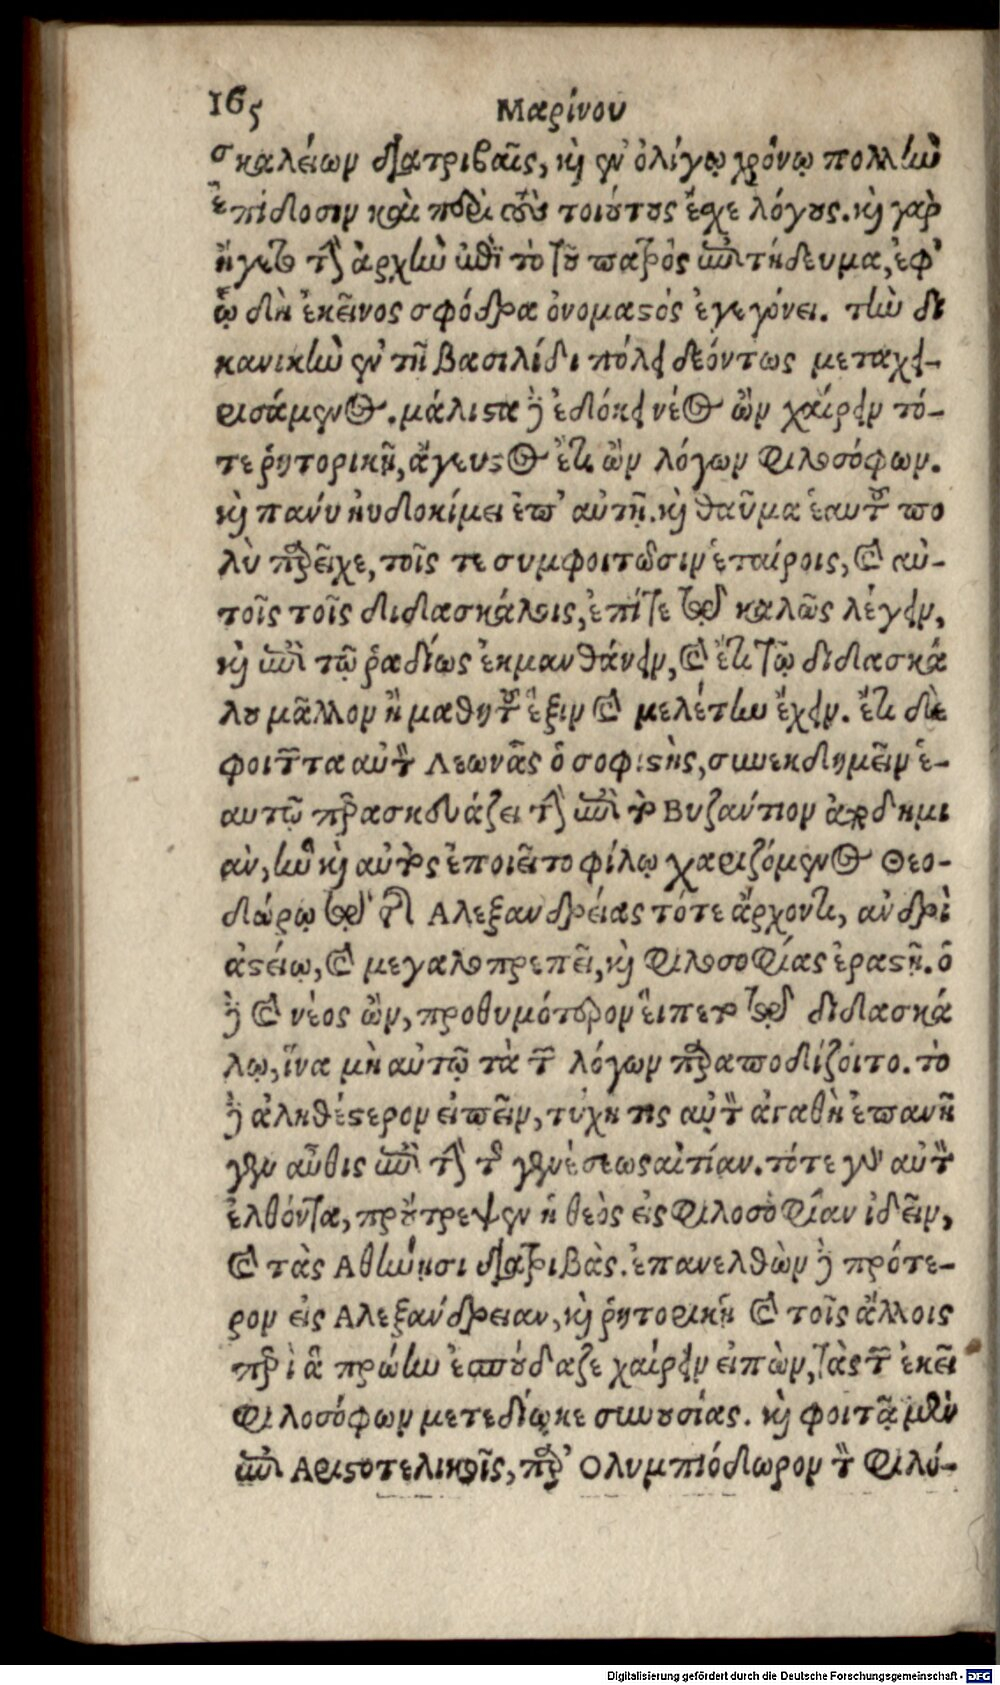 165
Μαρίνου
σκαλείων διατριβαῖς, καὶ ἐν ὀλίγῳ χρόνῳ πολλὴν
ἐπίδοσιν καὶ περὶ τοὺς τοιούτους ἔσχε λόγους. καὶ γὰρ
ἤγετο τὴν ἀρχὴν ἐπὶ τὸ τοῦ πατρὸς ἐπιτήδευμα, ἐφ'
ᾧ δὴ ἐκεῖνος σφόδρα ὀνομαστὸς ἐγεγόνει. τὴν δι
κανικὴν ἐν τῇ βασιλίδι πόλει δεόντως μεταχει-
ρισάμενος. μάλιστα δὲ ἐδόκει νέος ὢν χαίρειν τό-
τε ῥητορικῇ, ἄγευστος ἔτι ὢν λόγων φιλοσόφων.
καὶ πανύ ηὐδοκίμει ἐπ' αὐτῇ. καὶ θαῦμα ἑαυτοῦ πο
λὺ παρεῖχε, τοῖς τε συμφοιτῶσιν ἑταίροις, καὶ αὐ-
τοῖς τοῖς διδασκάλοις, ἐπί τε τῷ καλῶς λέγειν,
καὶ ἐπὶ τῷ ῥαδίως ἐκμανθάνειν, καὶ ἔτι τῷ διδασκά
λου μᾶλλον ἢ μαθητοῦ ἕξιν καὶ μελέτην ἔχειν. ἔτι δὲ
φοιτῶντα αὐτὸν Λεωνᾶς ὁ σοφιστὴς, συνεκδημεῖν ἑ-
αυτῷ παρασκευάζει τὴν ἐπὶ τὸ Βυζάντιον ἀποδημι
αν, ἣν καὶ αὐτὸς ἐποιεῖτο φίλῳ χαριζόμενος Θεο-
δώρῳ τῷ τῆς Αλεξανδρείας τότε ἄρχοντι, ανδρὶ
ἀστείῳ, καὶ μεγαλοπρεπεῖ, καὶ φιλοσοφίας ἐραστῇ. ὁ
δὲ καὶ νέος ὢν, προθυμότερον εἵπετο τῷ διδασκά
λῳ, ἵνα μὴ αὐτῷ τὰ τῶν λόγων παραποδίζοιτο. τὸ
δὲ ἀληθέστερον εἰπεῖν, τύχη τις αὐτὸν ἀγαθὴ ἐπανῆ
γεν αὖθις ἐπὶ τὴν τῆς γενέσεως αἰτίαν. τότε γὰρ αὐτὸν
ἐλθόντα, προὔτρεψεν ἡ θεὸς εἰς φιλοσοφίαν ἰδεῖν,
καὶ τὰς Αθήνησι διατριβὰς. ἐπανελθὼν δὲ πρότε-
ρον εἰς Αλεξανδρειαν, καὶ ῥητορικῇ καὶ τοῖς ἄλλοις
περὶ ἃ πρώην ἐσπούδαζε χαίρειν εἰπὼν, τὰς τῶν ἐκεῖ
φιλοσόφων μετεδίωκε συνουσίας. καὶ φοιτᾷ μὲν
ἐπὶ Αριστοτελικοῖς, παρ' Ολυμπιόδωρον τὸν φιλό-
Digitalisierung gefördert durch die Deutsche Forschungsgemeinschaft - DFG